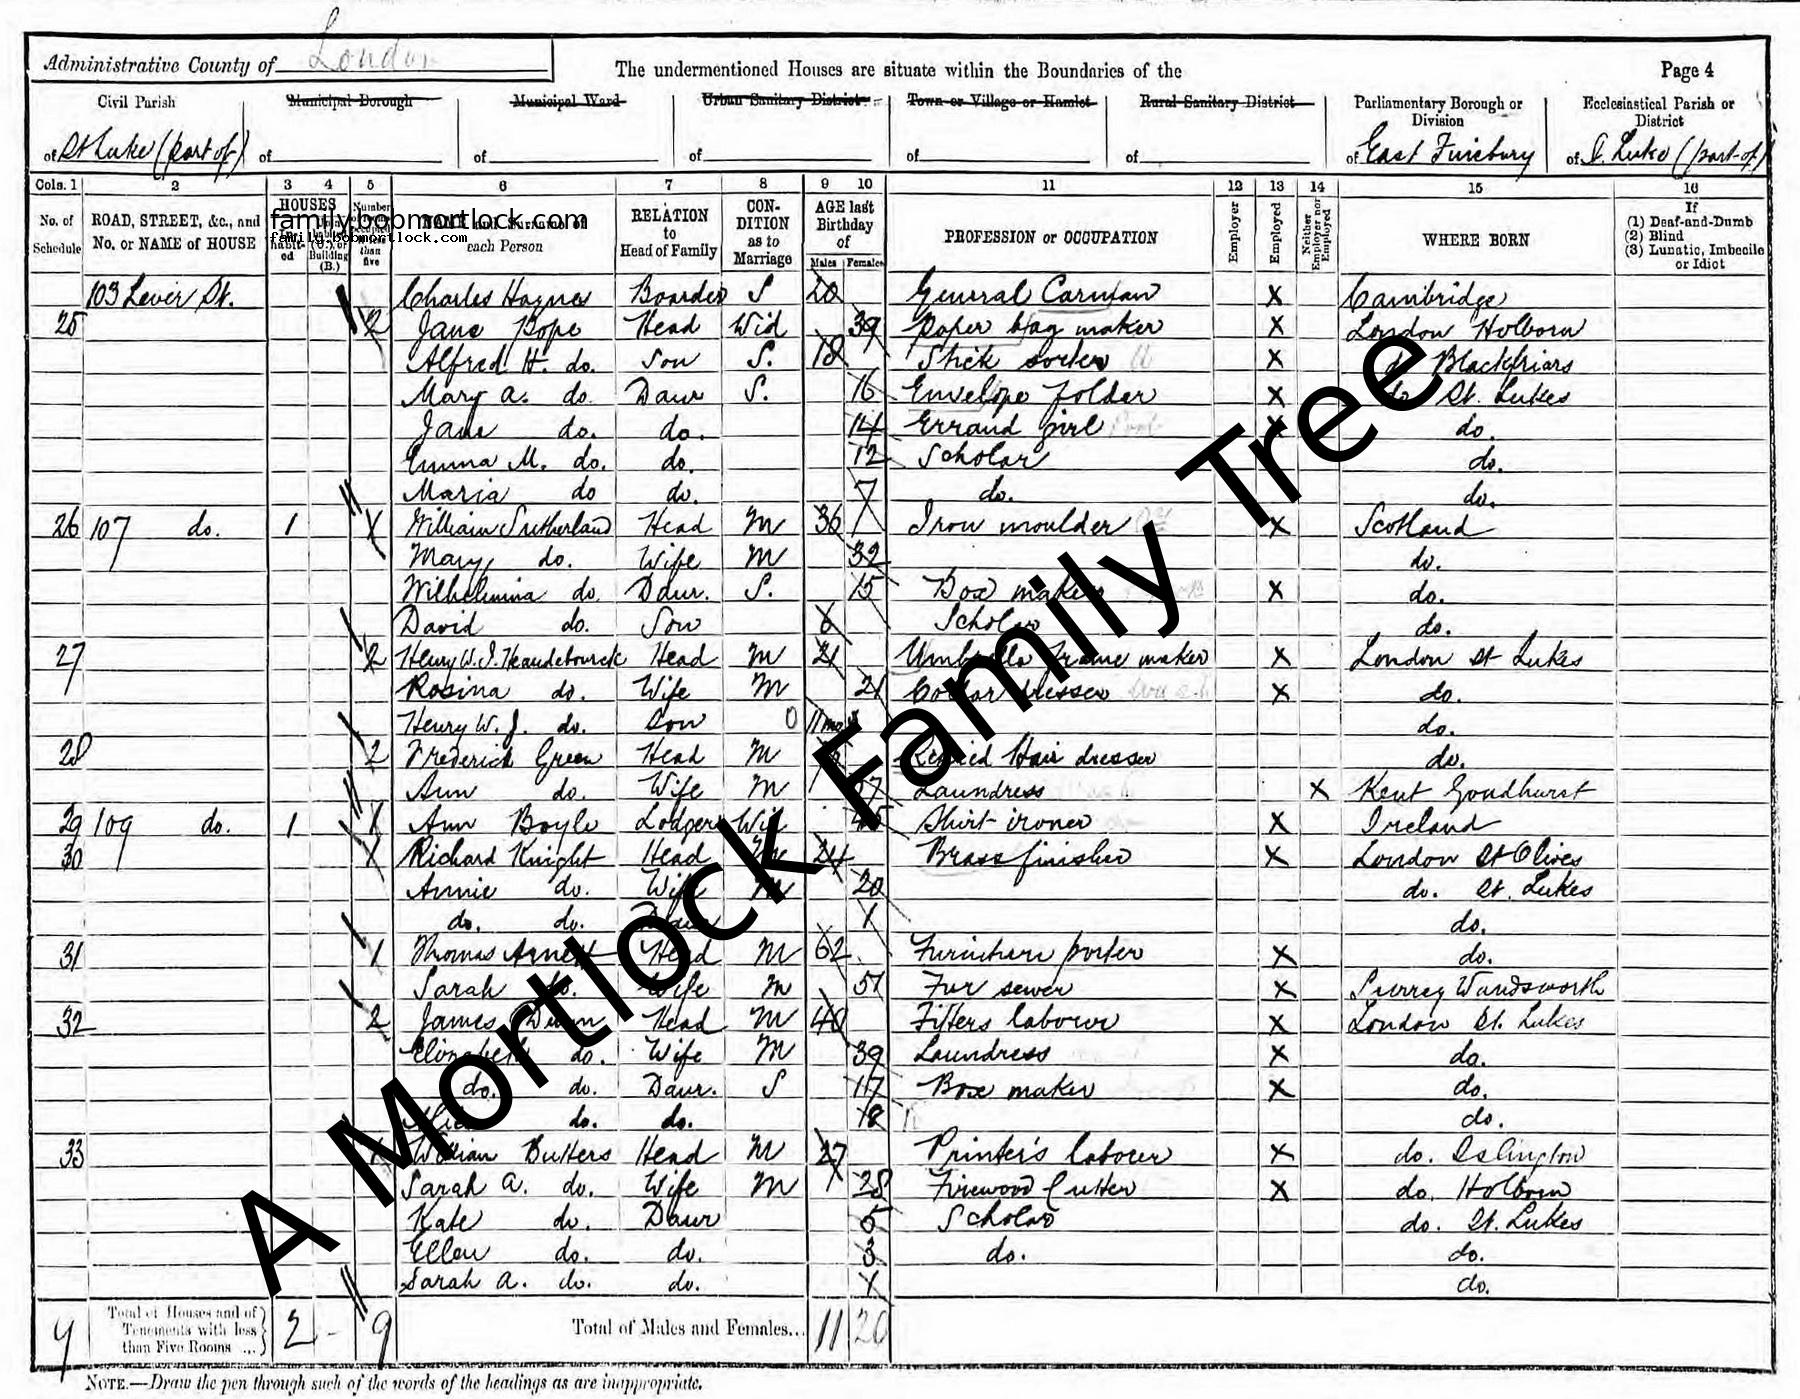 Administrative County of London
The undermentioned Houses are situate within the Boundaries of the
Page 4
Civil Parish Municipal Borough Municipal Ward Urban Sanitary District Town or Village or Hamlet Rural Sanitary District Parliamentary Borough or Division Ecclesiastical Parish or District
of St Luke (part of) of of of of of of East Finsbury of S. Luke (part of)
Cols. 1 2 3 4 5 6 7 8 9 10 11 12 13 14 15 16
No. of Schedule ROAD, STREET, &c., and No. or NAME of HOUSE HOUSES NAME and Surname of each Person RELATION to Head of Family CONDITION as to Marriage AGE last Birthday of Males Females PROFESSION or OCCUPATION Employer Employed Neither Employer nor Employed WHERE BORN If (1) Deaf-and-Dumb (2) Blind (3) Lunatic, Imbecile or Idiot
familybobmortlock.com
family.bobmortlock.com
103 Lever St. Charles Haynes Boarder S 20 General Carman X Cambridge
25 2 Jane Pope Head Wid 39 Paper bag maker X London Holborn
Alfred H. do. Son S. 18 Stick sorter X do Blackfriars
Mary A. do. Daur S. 16 Envelope folder X do. St. Lukes
Jane do. do. 14 Errand girl X do.
Emma M. do. do. 12 Scholar do.
Maria do do. 7 do. do.
26 107 do. 1 X William Sutherland Head M 36 Iron moulder X Scotland
Mary do. Wife M 32 do.
Wilhelmina do. Daur. S. 15 Box maker X do.
David do. Son 6 Scholar do.
27 2 Henry W. J. Head M 21 Umbrella Frame maker X London St Lukes
Rosina do. Wife M 21 Collar dresser X do.
Henry W. J. do. Son 11 mos do.
28 2 Frederick Green Head M Retired Hair dresser do.
Ann do. Wife M 57 Laundress X Kent Goudhurst
29 109 do. 1 1 Ann Boyle Lodger Wid 45 Shirt ironer X Ireland
30 1 Richard Knight Head M 24 Brass finisher X London St Olives
Annie do. Wife M 20 do. St. Lukes
do. do. Daur 1 do.
31 1 Thomas Head M 62 Furniture porter X do.
Sarah do. Wife M 51 Fur sewer X Surrey Wandsworth
32 2 James Head M 40 Fitters labourer X London St. Lukes
Elizabeth do. Wife M 39 Laundress X do.
do. do. Daur. S 17 Box maker X do.
do. do. do.
33 William Butters Head M 27 Printer's labourer X do. Islington
Sarah A. do. Wife M 28 Firewood Cutter X do. Holborn
Kate do. Daur 5 Scholar do. St. Lukes
Ellen do. do. 3 do. do.
Sarah A. do. do. 1 do.
4 Total of Houses and of Tenements with less than Five Rooms ... 2 - 9 Total of Males and Females... 11 20
NOTE.—Draw the pen through such of the words of the headings as are inappropriate.
A Mortlock Family Tree